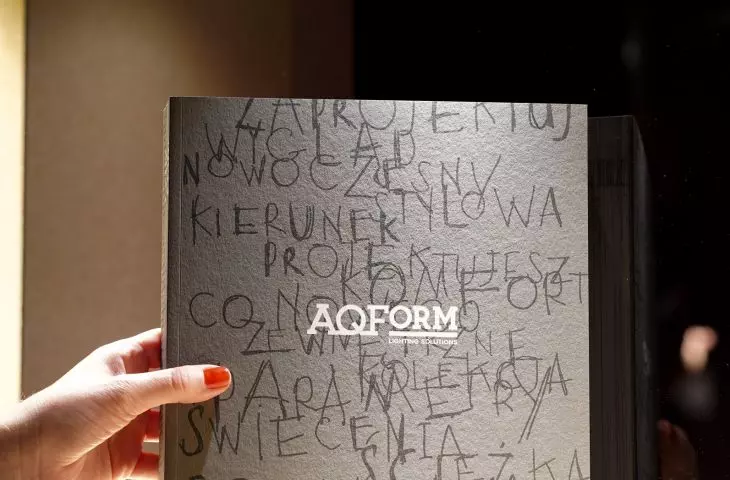 ZAPROJEKTUJ
WYGLĄD
NOWOCZESNY
STYLOWA
KIERUNEK
PROJEKTUJESZ
KOMFORT
CO NOWEGO
AQFORM
LIGHTING SOLUTIONS
ZEWNĘTRZNE
KOLEKCJA
PARAMETRY
ŚWIECENIA
ŚCIEŻKA